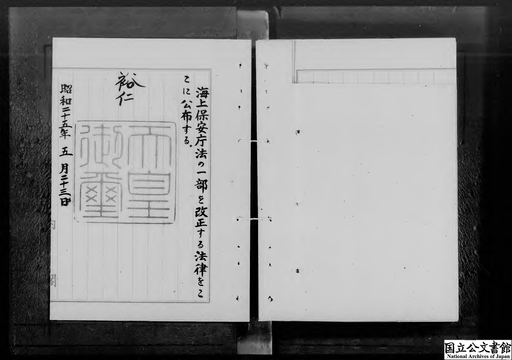 海上保安庁法の一部を改正する法律をこ
こに公布する。
裕仁
天皇
御璽
昭和二十五年五月二十三日
国立公文書館
National Archives of Japan